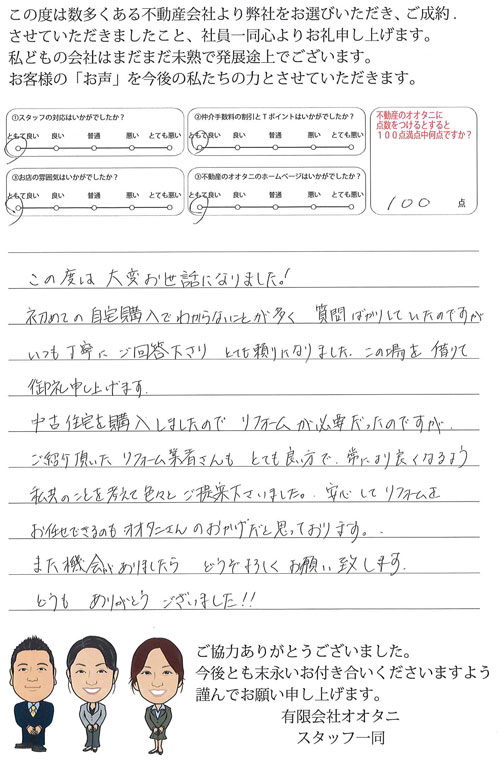 この度は数多くある不動産会社より弊社をお選びいただき、ご成約.
させていただきましたこと、社員一同心よりお礼申し上げます。
私どもの会社はまだまだ未熟で発展途上でございます。
お客様の「お声」を今後の私たちの力とさせていただきます。
①スタッフの対応はいかがでしたか？
とても良い 良い 普通 悪い とても悪い
②仲介手数料の割引とTポイントはいかがですか？
とても良い 良い 普通 悪い とても悪い
不動産のオオタニに
点数をつけるとすると
100点満点中何点ですか？
100 点
③お店の雰囲気はいかがでしたか？
とても良い 良い 普通 悪い とても悪い
③不動産のオオタニのホームページはいかがですか？
とても良い 良い 普通 悪い とても悪い
この度は 大変お世話になりました！
初めての自宅購入でわからないことが多く 質問ばかりしていたのですが
いつも丁寧に ご回答下さり とても頼りになりました. この場を借りて
御礼申し上げます.
中古住宅を購入しましたので リフォームが必要だったのですが.
ご紹介頂いた リフォーム業者さんも とても良い方で. 常により良くなるよう
私共のことを考えて色々と ご提案下さいました。. 安心してリフォームを
お任せできるのもオオタニさんのおかげだと思っております。.
また機会がありましたら どうぞよろしくお願い致します.
どうも ありがとう ございました!!
ご協力ありがとうございました。
今後とも末永いお付き合いくださいますよう
謹んでお願い申し上げます。
有限会社オオタニ
スタッフ一同